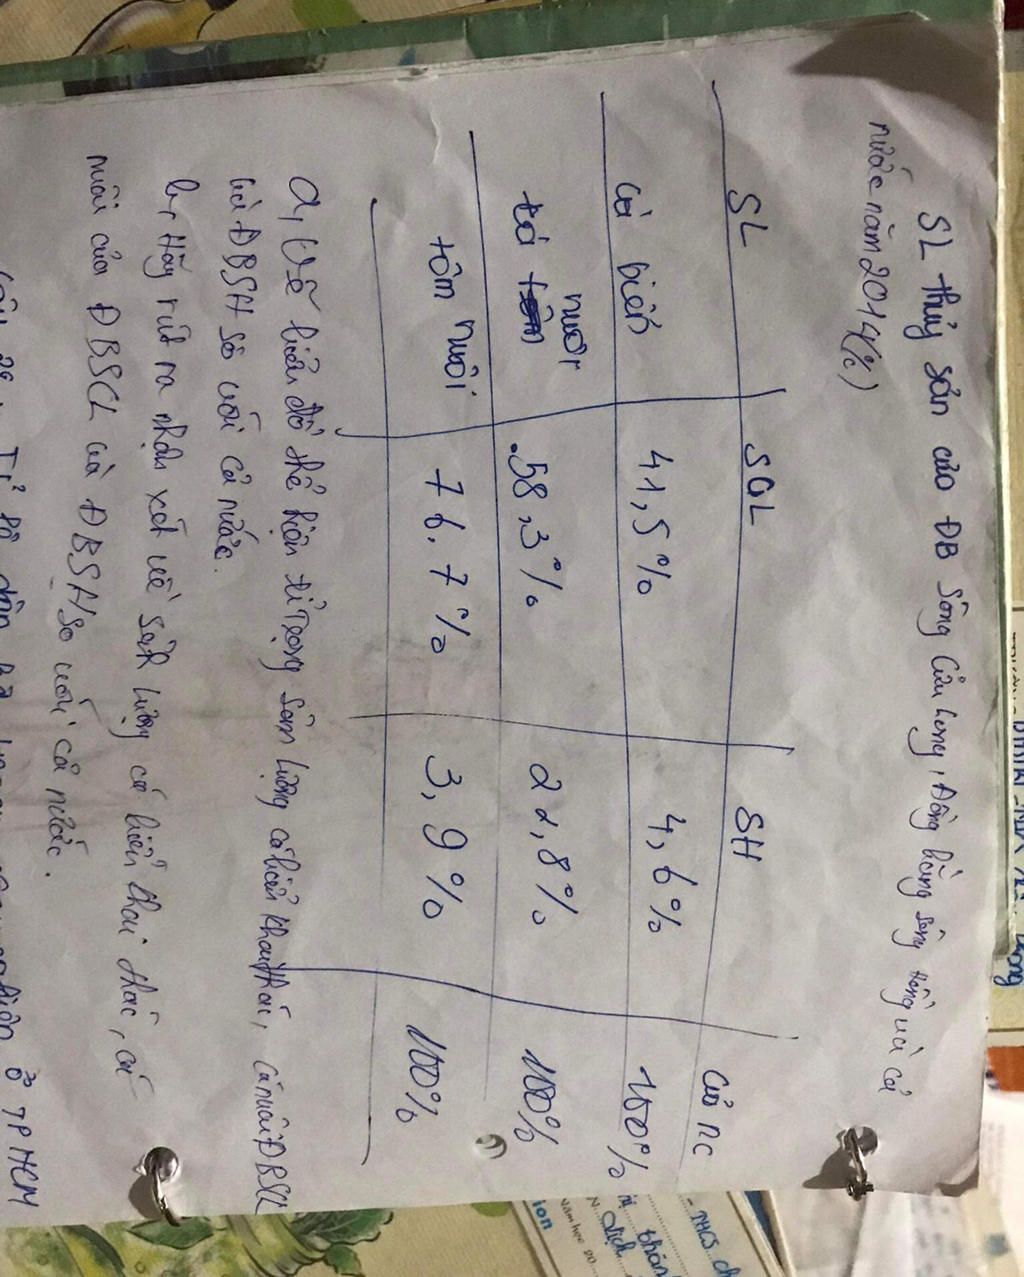 SL thủy sản của ĐB Sông Cửu Long, Đồng bằng sông Hồng và cả
nước năm 2014(%)
SL SCL SH Cả nc
Cá biển 41,5% 4,6% 100%
Cá nuôi 58,3% 22,8% 100%
tôm nuôi 76,7% 3,9% 100%
a, Vẽ biểu đồ thể hiện tỉ trọng sản lượng cá biển khai thác, cá nuôi ĐBSCL
và ĐBSH so với cả nước.
b, Hãy rút ra nhận xét về sản lượng cá biển khai thác, cá
nuôi của ĐBSCL và ĐBSH so với cả nước.
ở TP HCM
- THCS
ion